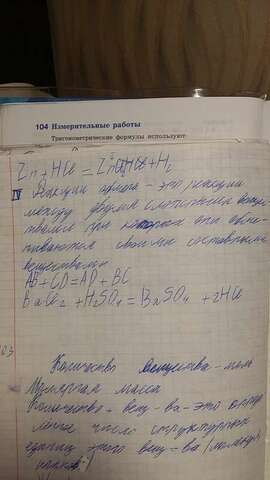 104 Измерительные работы
Тригонометрические формулы используют
Zn + HCl = ZnCl + H2
IV Реакции обмена - это реакции
между двумя сложными вещес
твами при которых они обме-
ниваются своими составными
веществами
AB + CD = AD + BC
BaCl2 + H2SO4 = BaSO4 + 2HCl
Количество вещества - моль
Молярная масса
Количество - вещ - ва - это опред
ленное число структурных
единиц этого вещ - ва (молекул